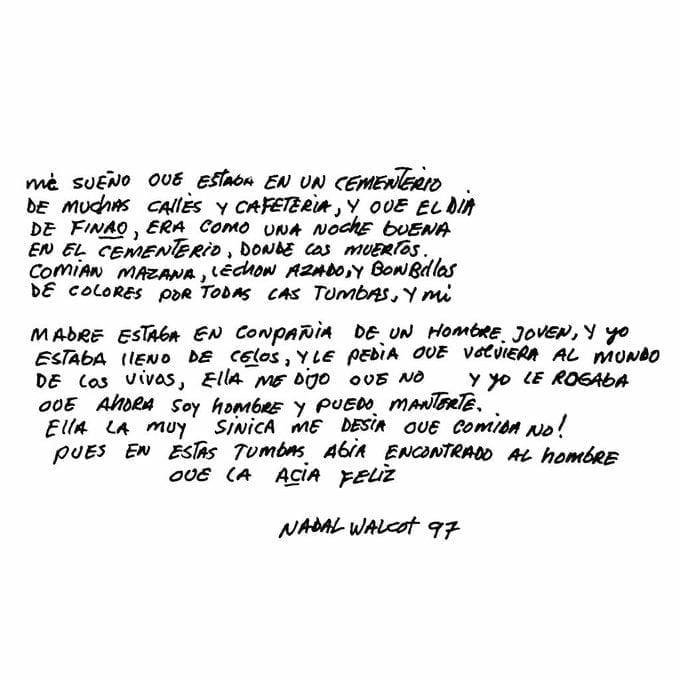 Mé SUEÑO QUE ESTABA EN UN CEMENTERIO
DE MUCHAS CALLES Y CAFETERIA, Y QUE EL DIA
DE FINAO, ERA COMO UNA NOCHE BUENA
EN EL CEMENTERIO, DONDE LOS MUERTOS.
COMIAN MAZANA, LECHON AZADO, Y BONBILLOS
DE COLORES POR TODAS LAS TUMBAS, Y MI
MADRE ESTABA EN CONPAÑIA DE UN HOMBRE JOVEN, Y YO
ESTABA LLENO DE CELOS, Y LE PEDIA QUE VOLVIERA AL MUNDO
DE LOS VIVOS, ELLA ME DIJO QUE NO Y YO LE ROGABA
QUE AHORA SOY HOMBRE Y PUEDO MANTERTE.
ELLA LA MUY SINICA ME DESIA QUE COMIDA NO!
PUES EN ESTAS TUMBAS ABIA ENCONTRADO AL HOMBRE
QUE LA ACIA FELIZ
NADAL WALCOT 97